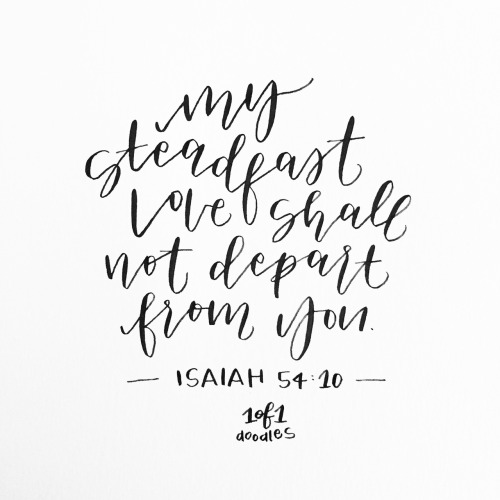 my
steadfast
love shall
not depart
from you.
— ISAIAH 54:10 —
1of1
doodles